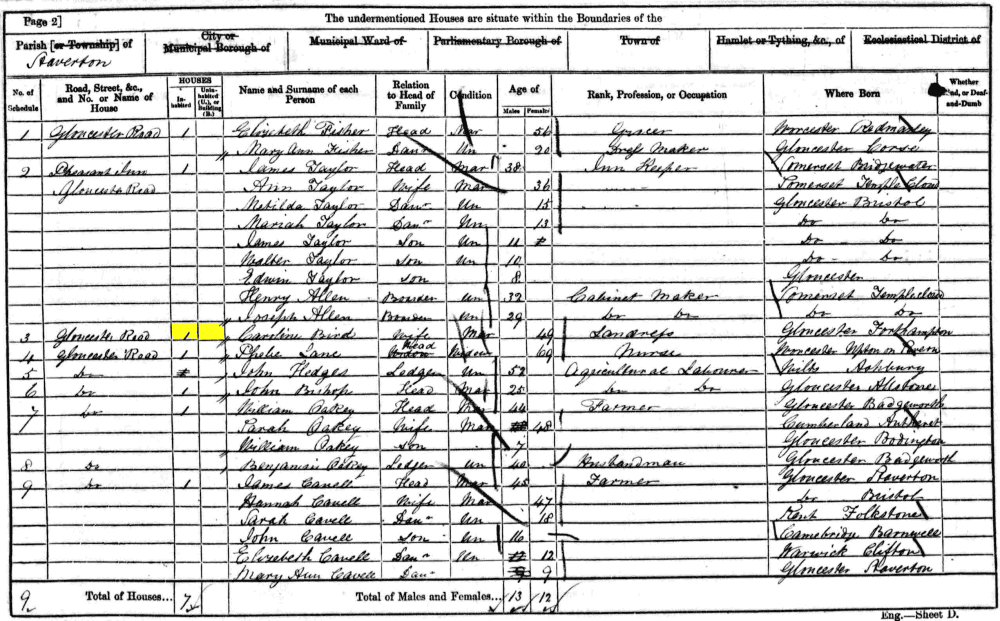 Page 2]
The undermentioned Houses are situate within the Boundaries of the
Parish [or Township] of City or Municipal Borough of Municipal Ward of Parliamentary Borough of Town of Hamlet or Tything, &c., of Ecclesiastical District of
Staverton
No. of Schedule Road, Street, &c., and No. or Name of House HOUSES In-habited Unin-habited (U.), or Building (B.) Name and Surname of each Person Relation to Head of Family Condition Age of Males Females Rank, Profession, or Occupation Where Born Whether Deaf-and-Dumb
1 Gloucester Road 1 Elizabeth Fisher Head Mar 56 Grocer Worcester Redmarley
Mary Ann Fisher Daur Un 20 Dress Maker Gloucester Corse
2 Pheasant Inn 1 James Taylor Head Mar 38 Inn Keeper Somerset Bridgewater
Gloucester Road Ann Taylor Wife Mar 36 Somerset Temple Cloud
Matilda Taylor Daur Un 15 Gloucester Bristol
Mariah Taylor Daur Un 13 Do Do
James Taylor Son Un 11 Do Do
Walter Taylor Son Un 10 Do Do
Edwin Taylor Son 8 Gloucester
Henry Allen Boarder Un 32 Cabinet Maker Somerset Templecloud
Joseph Allen Boarder Un 29 Do Do Do Do
3 Gloucester Road 1 Caroline Bird Wife Mar 49 Landress Gloucester Forthampton
4 Gloucester Road 1 Phebe Lane Head Widow 69 Nurse Worcester Upton on Severn
5 Do John Hedges Lodger Un 52 Agricultural Labourer Wilts Ashbury
6 Do 1 John Bishop Head Mar 25 Do Do Gloucester Allstone
7 Do 1 William Oakey Head Mar 44 Farmer Gloucester Badgeworth
Sarah Oakey Wife Mar 48 Cumberland
William Oakey Son 7 Gloucester Bodington
8 Do Benjamin Oakey Lodger Un 40 Husbandman Gloucester Badgeworth
9 Do 1 James Cavell Head Mar 45 Farmer Gloucester Staverton
Hannah Cavell Wife Mar 47 Do Bristol
Sarah Cavell Daur Un 18 Kent Folkstone
John Cavell Son Un 16 Camebridge Barnwell
Elizebeth Cavell Daur Un 12 Warwick Clifton
Mary Ann Cavell Daur 9 Gloucester Staverton
9 Total of Houses... 7 Total of Males and Females... 13 12
Eng.—Sheet D.